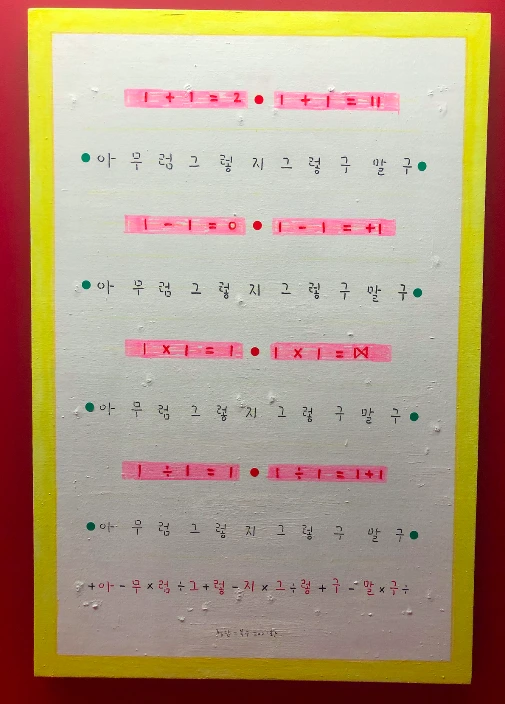 1 + 1 = 2 ● 1 + 1 = 11
● 아 무 럼 그 렇 지 그 렇 구 말 구 ●
1 - 1 = 0 ● 1 - 1 = +1
● 아 무 럼 그 렇 지 그 렇 구 말 구 ●
1 × 1 = 1 ● 1 × 1 = ⋈
● 아 무 럼 그 렇 지 그 렇 구 말 구 ●
1 ÷ 1 = 1 ● 1 ÷ 1 = 1+1
● 아 무 럼 그 렇 지 그 렇 구 말 구 ●
+ 아 - 무 × 럼 ÷ 그 + 렇 - 지 × 그 ÷ 렇 + 구 - 말 × 구 ÷